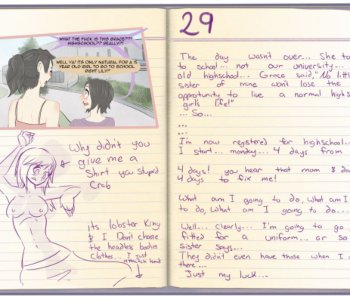 WHAT THE FUCK IS THIS GRACE???
HIGHSCHOOL?? REALLY??
WELL YA! ITS ONLY NATURAL FOR A 16
YEAR OLD GIRL TO GO TO SCHOOL
RIGHT LILY?
Why didn't you
give me a
Shirt you stupid
Crab
Its lobster King
& I Don't choose
the headless bodies
clothes I just
attach head
29
The day wasn't over... She to
to school... not our university...
old highschool... Grace said, "No little
sister of mine won't lose the
opportunity to live a normal high
girls life!"
... So...
...
...
I'm now registered for highschool...
I start... monday... 4 days from
4 days! you hear that mom & d
4 days to fix me!
What am I going to do, What am I
to do, What am I going to do...
Well... clearly... I'm going to go
fitted for a uniform... or so
sister says...
They didn't even have those when I
there...
Just my luck...